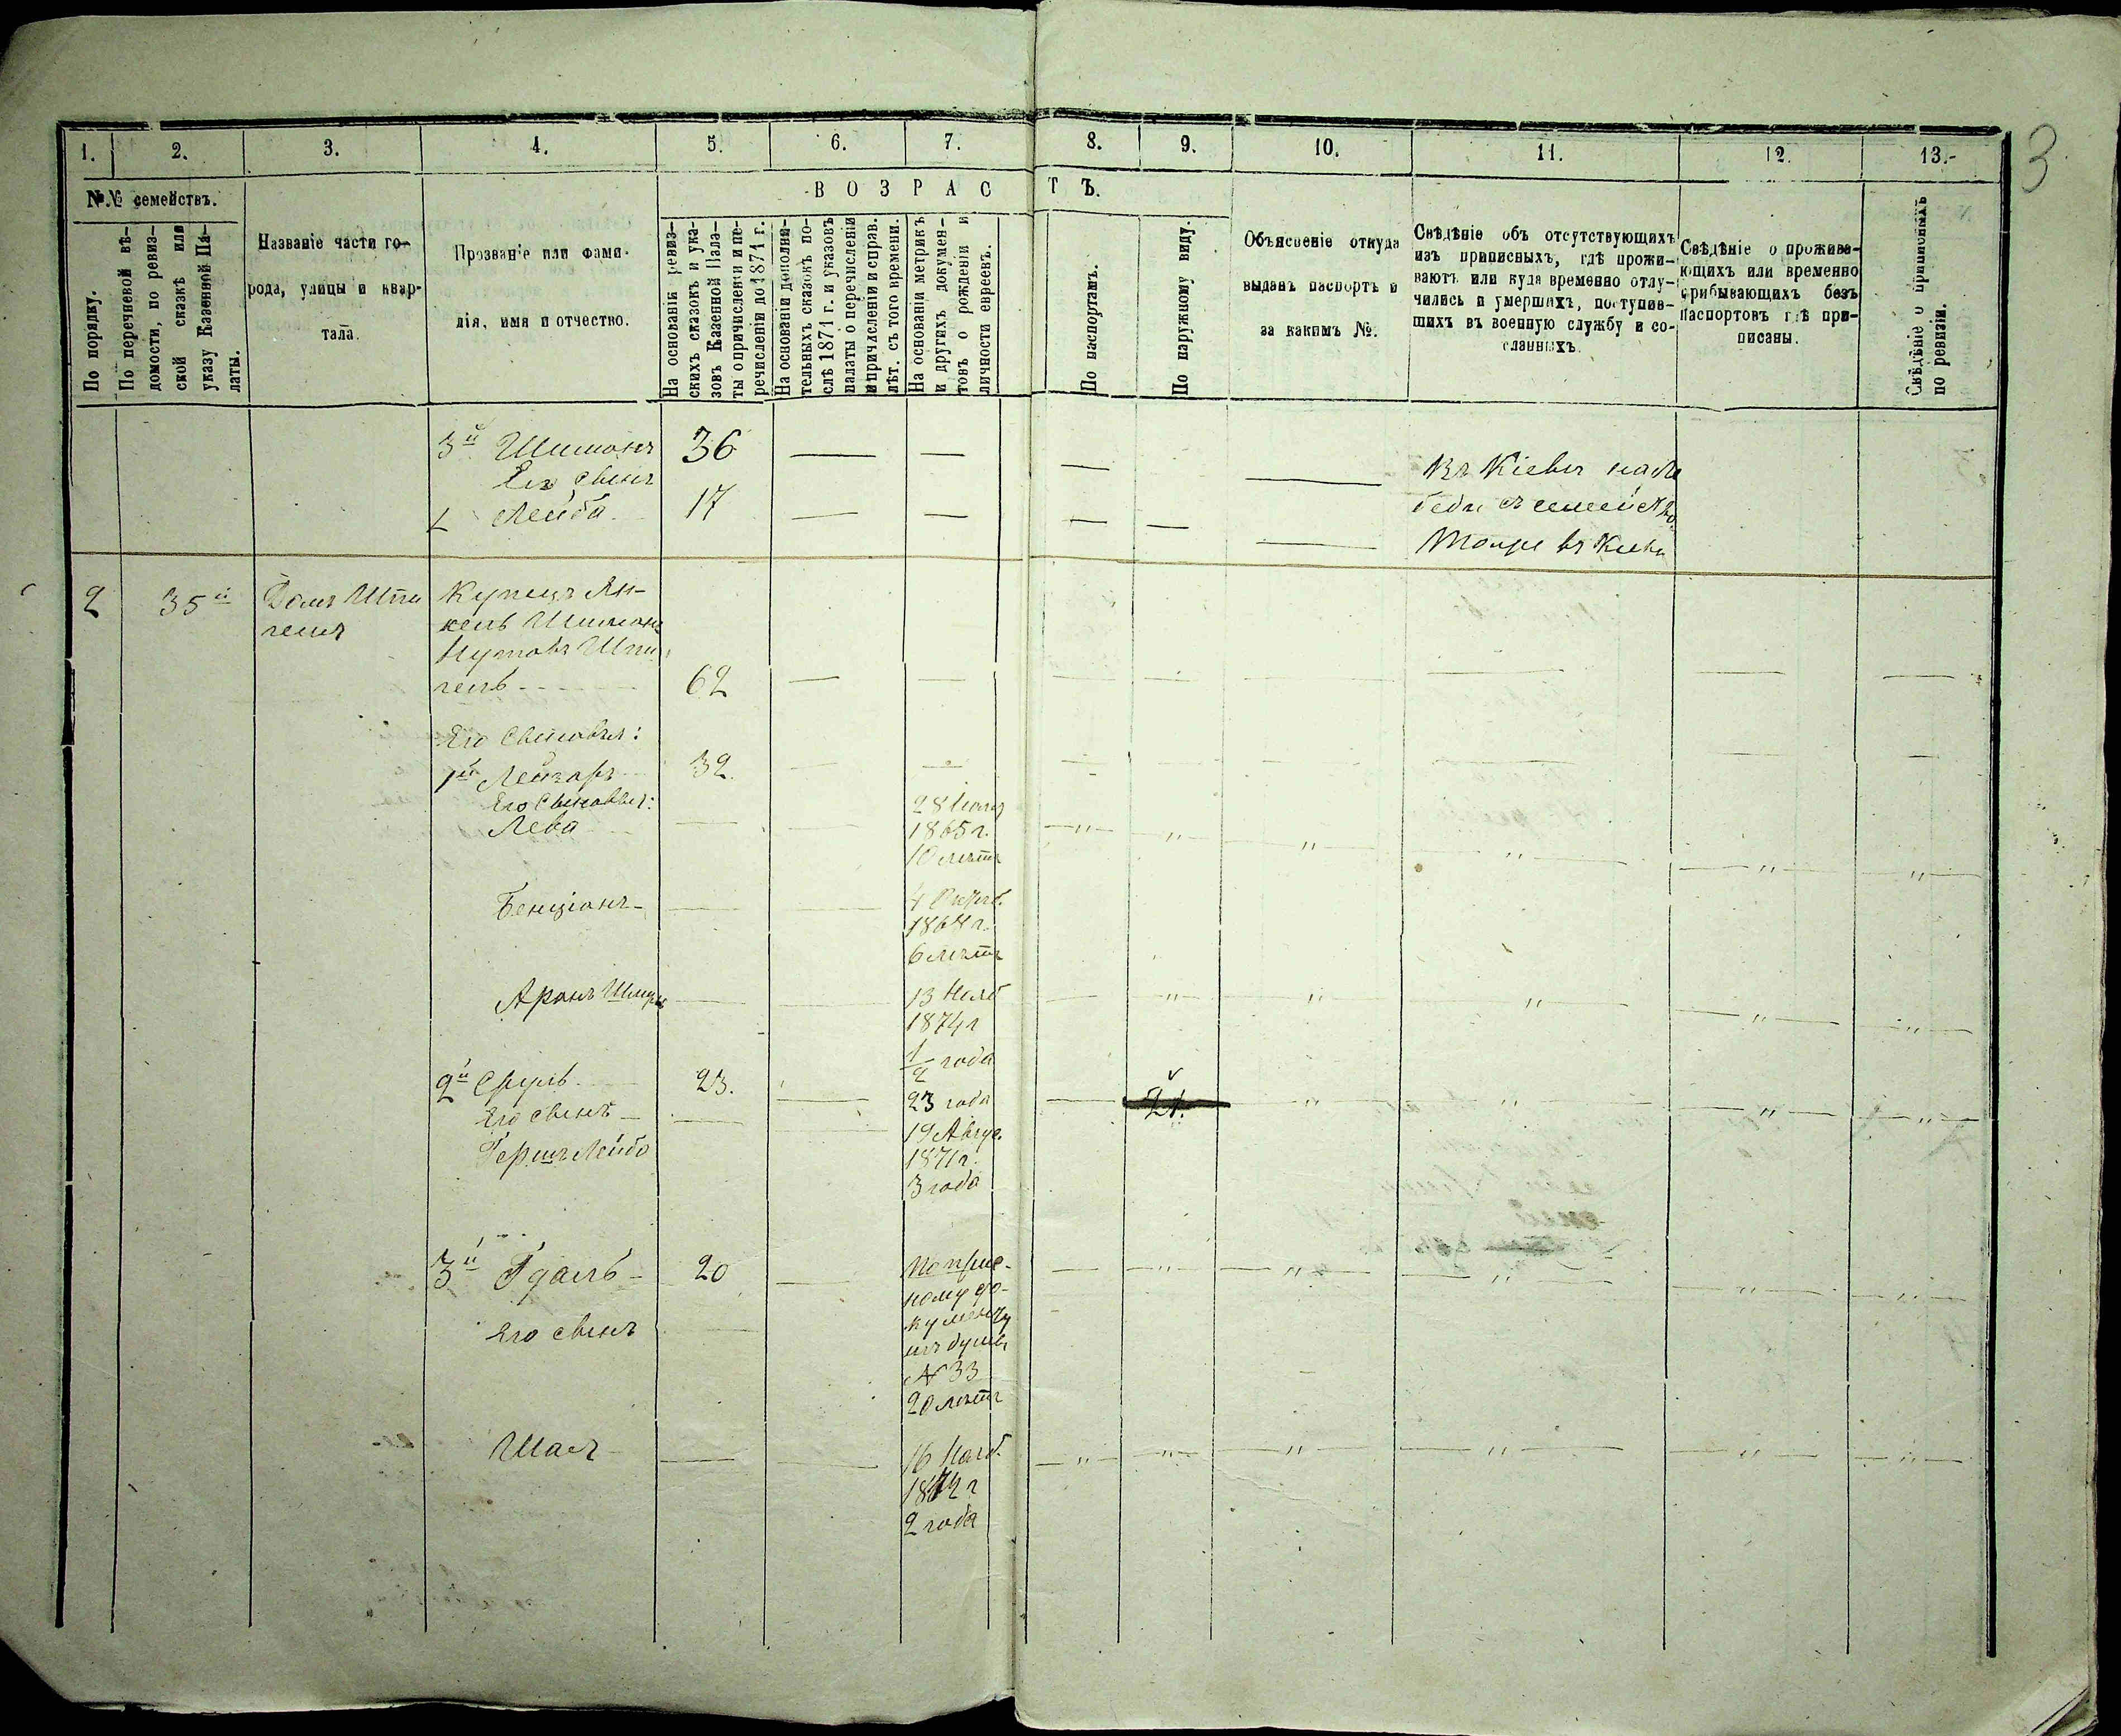 3
1. 2. 3. 4. 5. 6. 7. 8. 9. 10. 11. 12. 13.
№№ семействъ.
По порядку.
По перечневой вѣ-
домости, по ревиз-
ской сказкѣ или
указу Казенной Па-
латы.
Названіе части го-
рода, улицы и квар-
тала.
Прозваніе или фами-
лія, имя и отчество.
ВОЗРАСТЪ.
На основаніи ревиз-
скихъ сказокъ и ука-
зовъ Казенной Пала-
ты о причисленіи и пе-
речисленіи до 1871 г.
На основаніи дополни-
тельныхъ сказокъ по-
слѣ 1871 г. и указовъ
палаты о перечисленіи
и причисленіи и справ.
лѣт. съ того времени.
На основаніи метрикъ
и другихъ докумен-
товъ о рожденіи и
личности евреевъ.
По паспортамъ.
По наружному виду.
Объясненіе откуда
выданъ паспортъ и
за какимъ №.
Свѣдѣніе объ отсутствующихъ
изъ приписныхъ, гдѣ прожи-
ваютъ или куда временно отлу-
чились и умершихъ, поступив-
шихъ въ военную службу и со-
сланныхъ.
Свѣдѣніе о прожива-
ющихъ или временно
прибывающихъ безъ
паспортовъ гдѣ при-
писаны.
Свѣдѣніе о приписныхъ
по ревизіи.
3й Шимонъ 36 — — — —
Въ Кіевѣ
Его сынъ
Лейба 17 — — — — —
Тоже въ Кіевѣ
2 35й Домъ Шпи
геля
Купецъ Ян-
кель Шимон
Нутовъ Шпи
гель 62 — — — — — — — —
Его Сыновья:
1й Лейзоръ 32. — —
Его Сыновья:
Лева — — 28
1865 г.
10 лѣтъ
Бенціонъ — — 4
1868 г.
6 лѣтъ
Аронъ Шмуль — — 13 Нояб
1874 г
1/2 года
2й Сруль 23. — 23 года — 21.
Его сынъ — — 19 Авгус.
Гершъ Лейбо 1871 г.
3 года
3й Гдаль 20 —
ному до-
кументу
изъ думы
№ 33
20 лѣтъ
Его сынъ —
Шая — — 16 Нояб.
1872 г
2 года